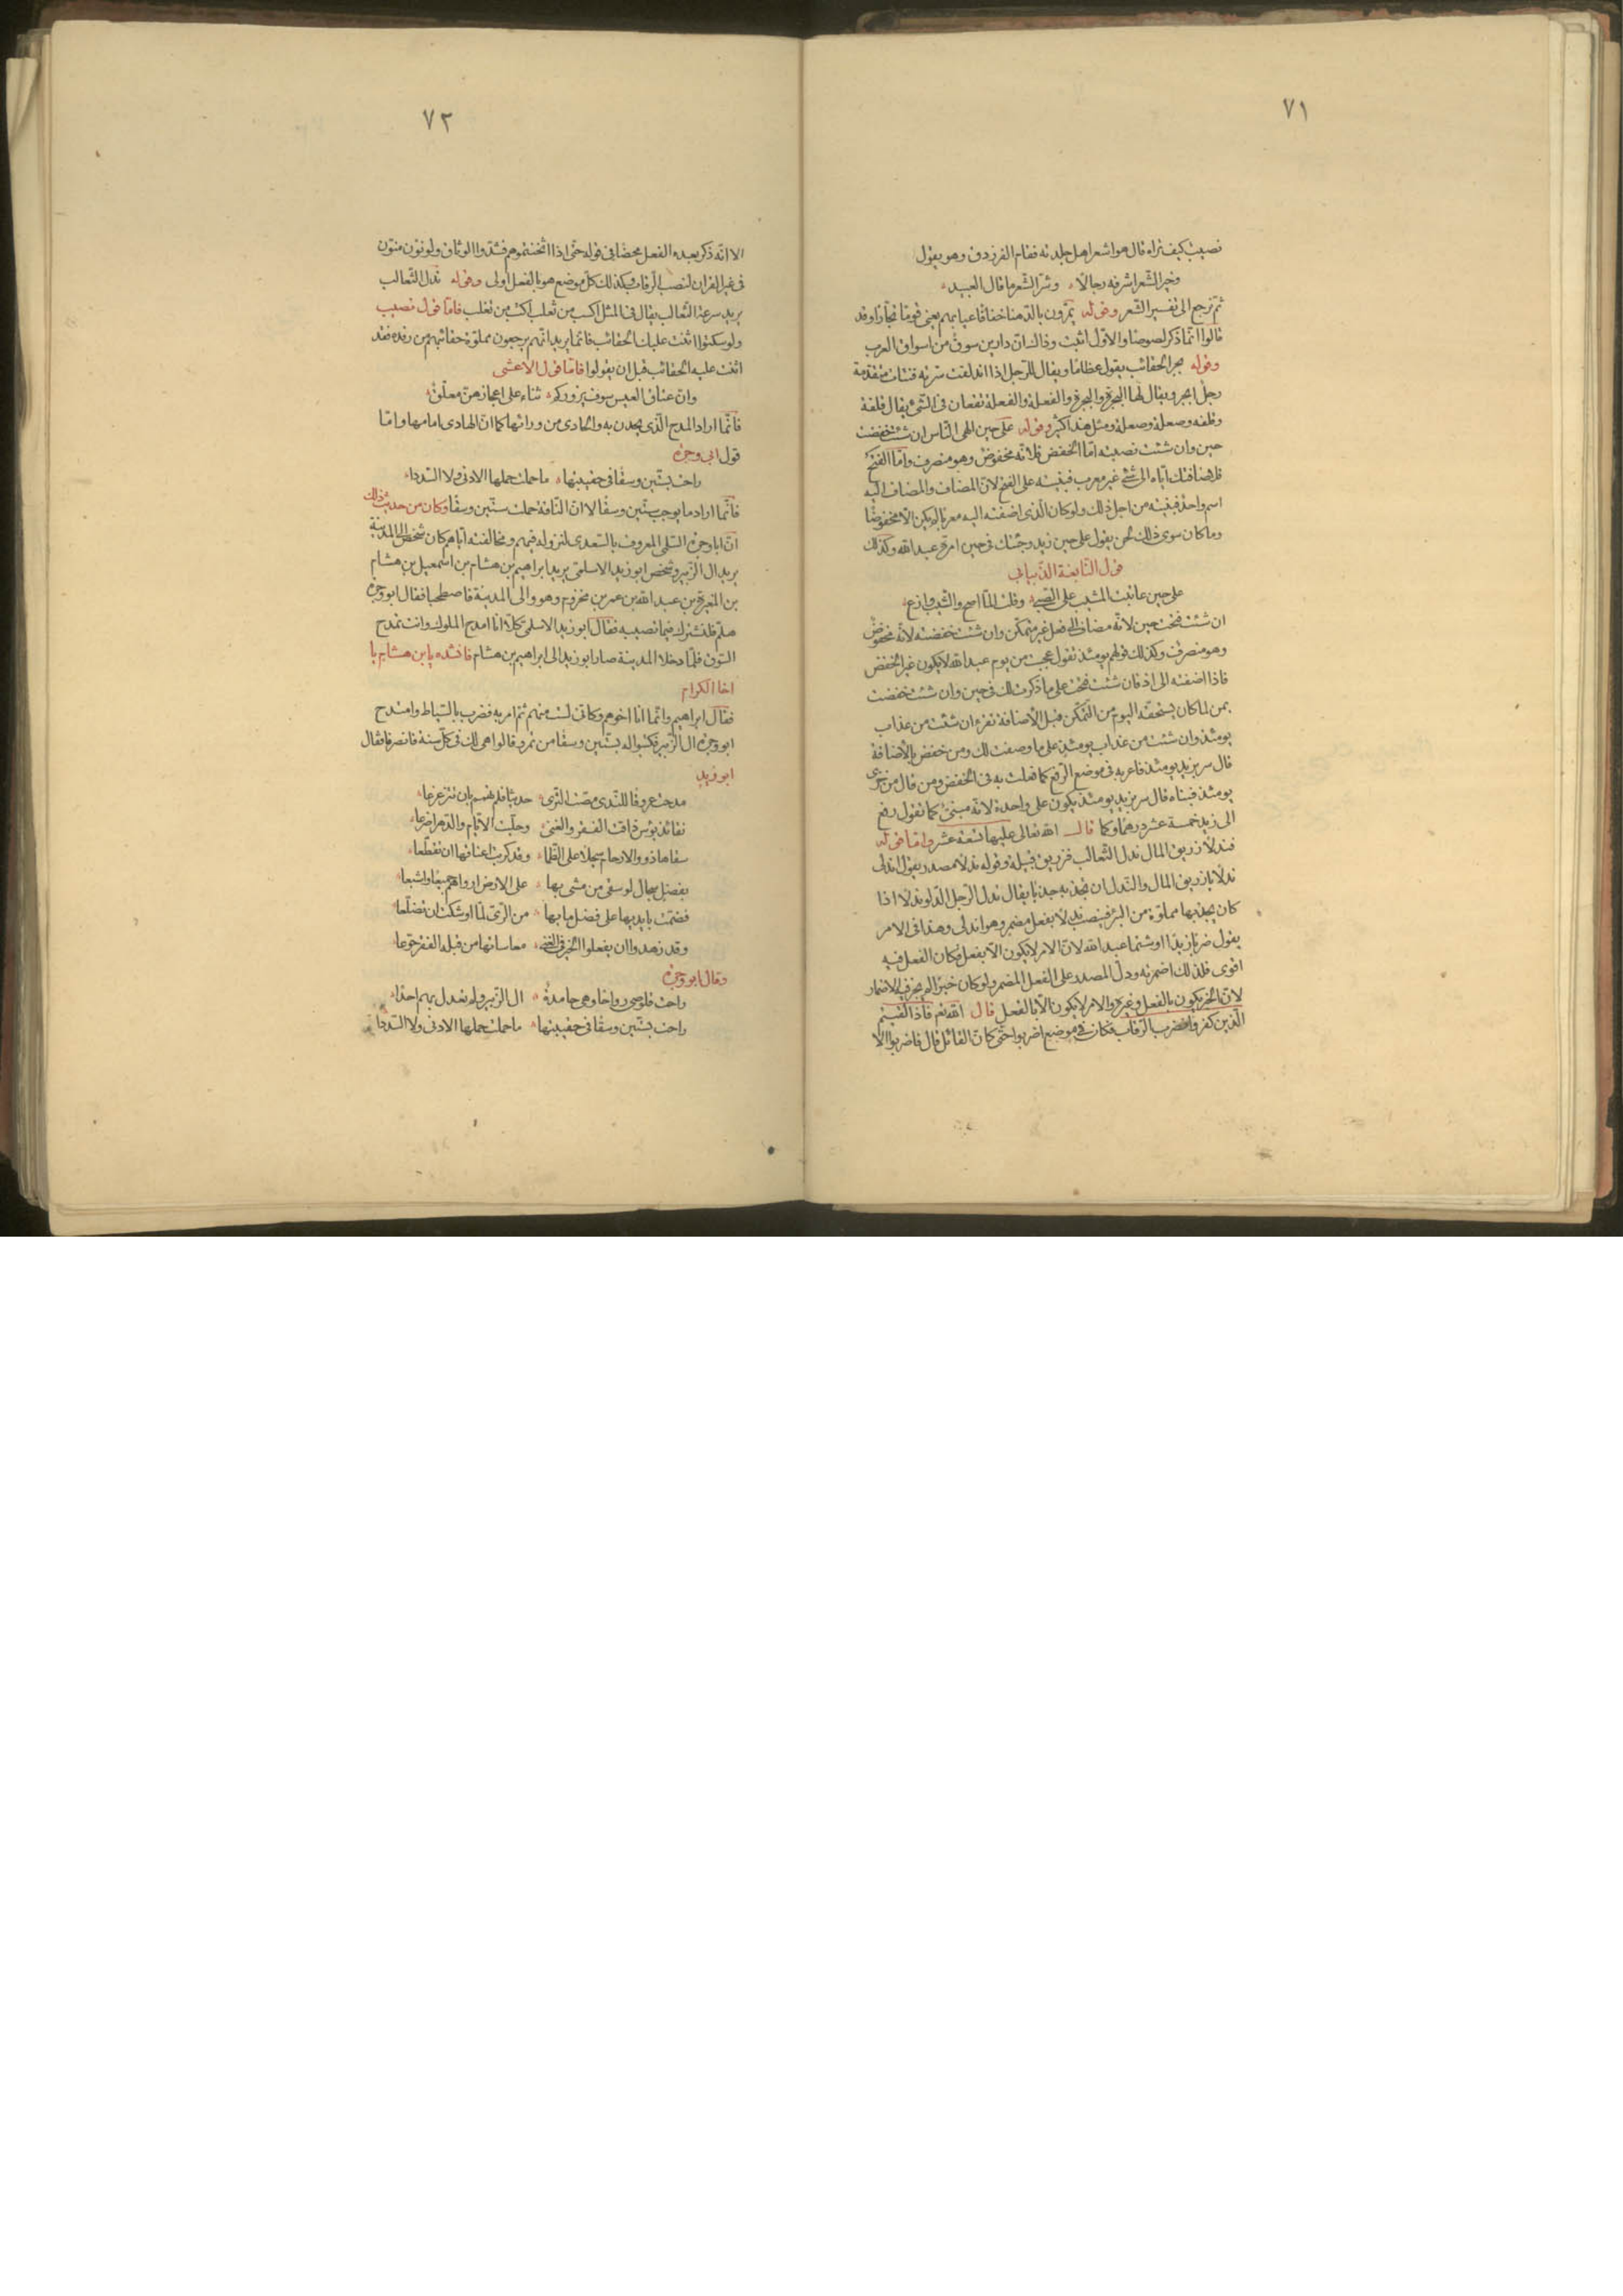 ٧١
نصيب كيف تراه قال هو اشعر اهل جلدته فقام الفرزدق وهو يقول
وخير الشعر اشرفه رجالا وشر الشعر ما قال العبيد
ثم نرجع الى تفسير الشعر وقوله يمرون بالدهنا خفافا عيابهم يعني قوما تجارا وقد
قالوا انما ذكر لصوصا والاول اثبت وذلك ان دارين سوق من اسواق العرب
وقوله بجر الحقائب يقول عظاما ويقال للرجل اذا اندلقت سرته فنتأت متقدمة
رجل ابجر ويقال لها البجرة والبجرة والفعلة والفعلة تقعان في الشئ يقال قلفة
وقلفه وصعلة وصعلة ومثل هذا كثير وقوله على حين الهى الناس ان شئت خفضت
حين وان شئت نصبته اما الخفض فلانه مخفوض وهو منصرف واما الفتح
فلاضافتك اياه الى شئ غير معرب فبنيته على الفتح لان المضاف والمضاف اليه
اسم واحد فبنيته من اجل ذلك ولو كان الذى اضفته اليه معربا لم يكن الا مخفوضا
وما كان سوى ذلك لحن يقول على حين زيد وجئتك في حين امرة عبد الله وكذلك
قول النابغة الذبياني
على حين عاتبت المشيب على الصبى وقلت الما اصح والشيب وازع
ان شئت فتحت حين لانه مضاف الى فعل غير متمكن وان شئت خفضته لانه مخفوض
وهو منصرف وكذلك قولهم يومئذ تقول عجبت من يوم عبد الله لا يكون غير الخفض
فاذا اضفته الى اذ فان شئت فتحت على ما ذكرت لك في حين وان شئت خفضت
بمن لما كان يستحقه اليوم من التمكن قبل الاضافة تقرء ان شئت من عذاب
يومئذ وان شئت من عذاب يومئذ على ما وصفت لك ومن خفض بالاضافة
قال سير بزيد يومئذ فاعربه في موضع الرفع كما فعلت به في الخفض ومن قال من خزى
يومئذ فبناه قال سير بزيد يومئذ يكون على واحدة لانه مبنى كما تقول رفع
الى زيد خمسة عشر درهما وكما قال الله تعالى عليها تسعة عشر واما قوله
فندلا زريق المال ندل الثعالب فزريق قبيلة وقوله ندلا مصدر يقول اندلى
ندلا يا زريق المال والندل ان تجذبه جذبا يقال ندل الرجل الدلو ندلا اذا
كان يجذبها مملوة من البئر فينصب ندلا بفعل مضمر وهو اندلى وهذا في الامر
يقول ضربا زيدا او شتما عبد الله لان الامر لا يكون الا بفعل فكان الفعل فيه
اقوى فلذلك اضمرته ودل المصدر على الفعل المضمر ولو كان خبرا لم يجز فيه الاضمار
لان الخبر يكون بالفعل وغيره والامر لا يكون الا بالفعل قال الله تع فاذا لقيتم
الذين كفروا فضرب الرقاب فكان في موضع اضربوا حتى كان القائل قال فاضربوا الا
٧٢
الا انه ذكر بعده الفعل محضا في قوله حتى اذا اثخنتموهم فشدوا الوثاق ولو نون منون
في غير القران لنصب الرقاب وكذلك كل موضع هو بالفعل اولى وقوله ندل الثعالب
يريد سرعة الثعالب يقال في المثل اكسب من ثعلب فاما قول نصيب
ولو سكتوا اثنت عليك الحقائب فانما يريد انهم يرجعون مملوة حقائبهم من رفده فقد
اثنت عليه الحقائب قبل ان يقولوا فاما قول الاعشى
وان عتاق العيس سوف يزوركم ثناء على اعجازهن معلق
فانما اراد المدح الذى يحدن به والحادى من ورائها كما ان الهادى امامها واما
قول ابى وجزة
راحت بستين وسقا في حقيبتها ما حملت حملها الادنى ولا السددا
فانما اراد ما يوجب ستين وسقا لا ان الناقة حملت ستين وسقا وكان من حديث ذلك
ان ابا وجزة السلمى المعروف بالسعدى لنزوله فيهم ومحالفته اياهم كان شخص الى المدينة
يريد ال الزبير وشخص ابو زيد الاسلمى يريد ابراهيم بن هشام بن اسمعيل بن هشام
بن المغيرة بن عبد الله بن عمر بن مخزوم وهو والى المدينة فاصطحبا فقال ابو وجزة
هلم فلنشترك فيما نصيبه فقال ابو زيد الاسلمى كلا انا امدح الملوك وانت تمدح
السوق فلما دخلا المدينة صار ابو زيد الى ابراهيم بن هشام فانشده يا بن هشام يا
اخا الكرام
فقال ابراهيم وانما انا اخوهم وكانى لست منهم ثم امر به فضرب بالسياط وامتدح
ابو وجزة ال الزبير فكتبوا له بستين وسقا من تمر وقالوا هى لك في كل سنة فانصرفا فقال
ابو زيد
مدحت عروقا للندى مصت الثرى حديثا فلم تهمم بان تتزعزعا
نقائذ بؤس ذاقت الفقر والغنى وحلبت الايام والدهر اضرعا
سقاها ذوو الارحام سجلا على الظما وقد كربت اعناقها ان تقطعا
بفضل سجال لو سقى من مشى بها على الارض ارواهم جميعا واشبعا
فضمت بايديها على فضل ما بها من الرى لما اوشكت ان تضلعا
وزهدها ان يفعلوا الخير في الغنى مقاساتها من قبله الفقر جوعا
وقال ابو وجزة
راحت قلوصى رواحا وهى حامدة ال الزبير ولم تعدل بهم احدا
راحت بستين وسقا في حقيبتها ما حملت حملها الادنى ولا السددا